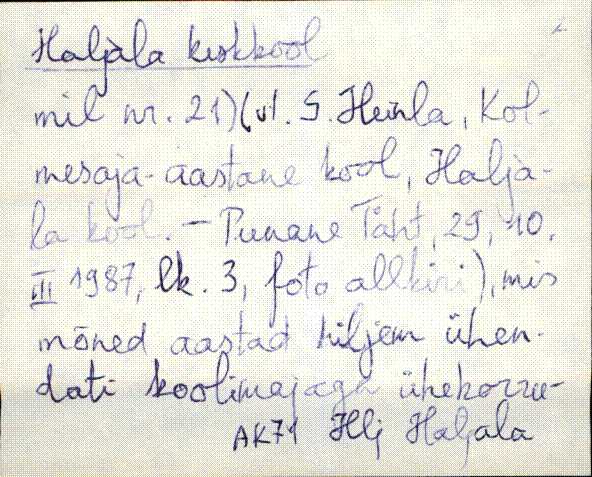 Haljala keskkool
mil nr. 21)(vt. S. Heinla, Kol-
mesaja-aastane kool, Halja-
la kool. - Punane Täht, 29, 10.
III 1987, lk. 3, foto allkiri), mis
mõned aastad hiljem ühen-
dati koolimajaga ühekorru-
AK71 Hlj Haljala